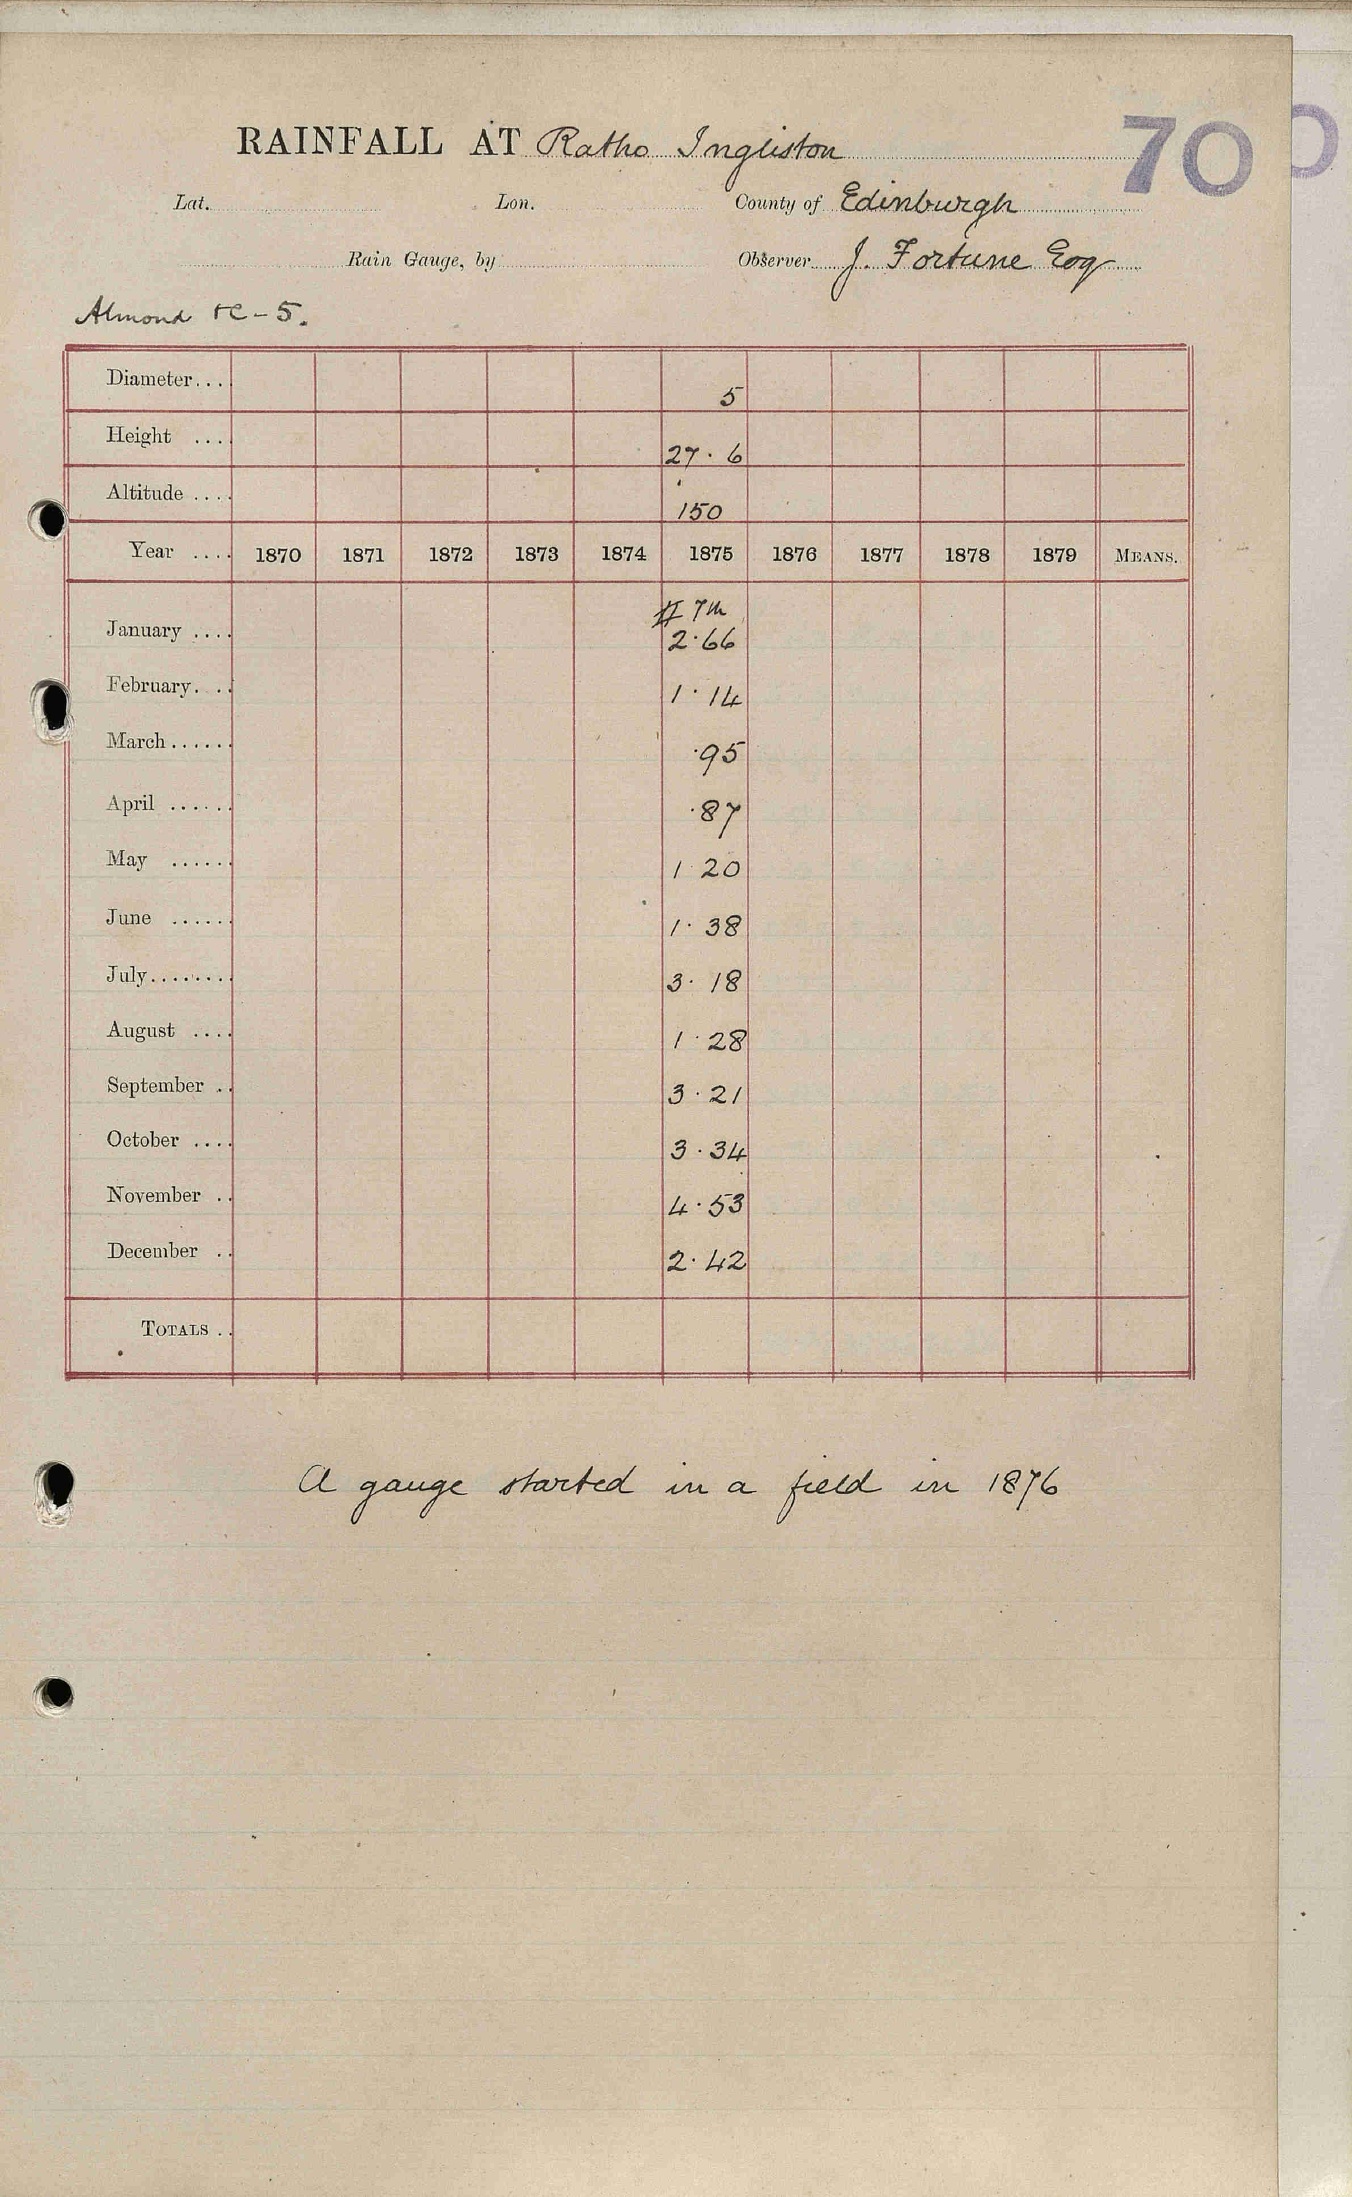 RAINFALL AT Ratho Ingliston 70
Lat. Lon. County of Edinburgh
Rain Gauge, by Observer J. Fortune Esq
Almond &c - 5.
Diameter... 5
Height ... 27 . 6
Altitude .... 150
Year .... 1870 1871 1872 1873 1874 1875 1876 1877 1878 1879 MEANS.
7th
January .... 2.66
February. .. 1.14
March...... .95
April ...... .87
May ...... 1 20
June ...... 1.38
July........ 3.18
August .... 1.28
September .. 3.21
October .... 3.34
November .. 4.53
December .. 2.42
TOTALS ..
A gauge started in a field in 1876